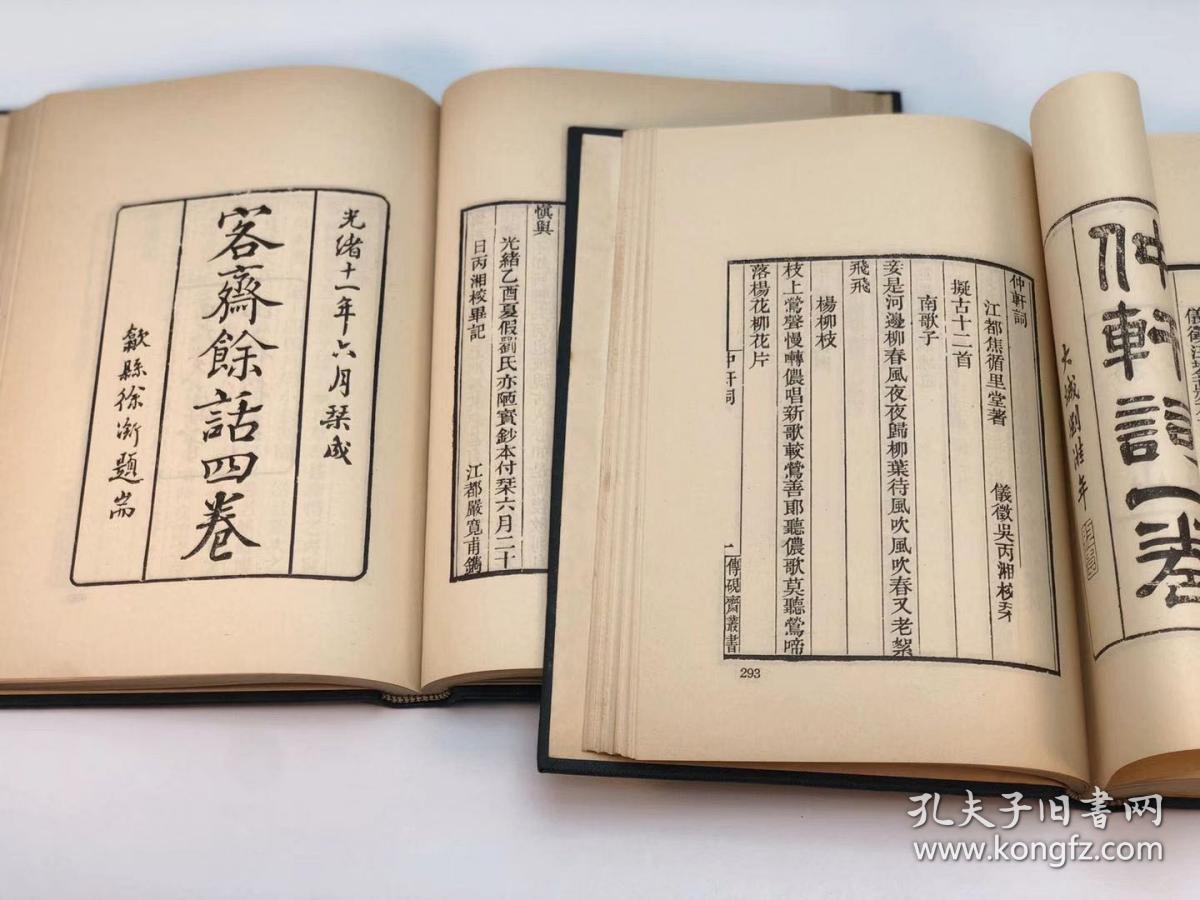 光緒十一年六月栞成
客齋餘話四卷
歙縣徐㴾題耑
慎與
光緒乙酉夏假劉氏亦陋實鈔本付栞六月二十
日丙湘校畢記
江都嚴寬甫鐫
仲軒詞
江都焦循里堂著
儀徵吳丙湘校栞
擬古十二首
南歌子
妾是河邊柳春風夜夜歸柳葉待風吹風吹春又老絮
飛飛
楊柳枝
枝上鶯聲慢囀儂唱新歌較鶯善耶聽儂歌莫聽鶯啼
落楊花柳花片
仲軒詞
一
傳硯齋叢書
293
仲軒詞一卷
孔夫子旧书网
www.kongfz.com